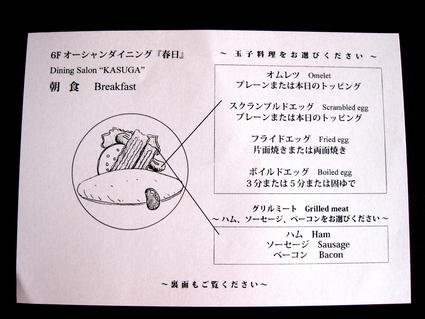 6F オーシャンダイニング『春日』
Dining Salon “KASUGA”
朝 食 Breakfast
～ 玉子料理をお選びください ～
オムレツ Omelet
プレーンまたは本日のトッピング
スクランブルドエッグ Scrambled egg
プレーンまたは本日のトッピング
フライドエッグ Fried egg
片面焼きまたは両面焼き
ボイルドエッグ Boiled egg
３分または５分または固ゆで
グリルミート Grilled meat
～ ハム、ソーセージ、ベーコンをお選びください ～
ハム Ham
ソーセージ Sausage
ベーコン Bacon
～ 裏面もご覧ください ～